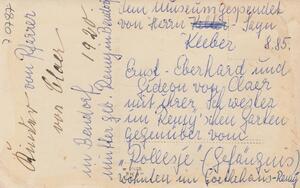 70287
Kinder von Pfarrer
von Claer
1920
in Bendorf
Mutter geb. Remy in Bendorf
Dem Museum gespendet
von Herrn Sayn
Kleber 8.85.
Ernst-Eberhard und
Gideon von Claer
mit ihrer Schwester
im Remy'schen Garten
gegenüber vom
"Polleesje" (Gefängnis)
wohnten im Goethehaus-Remy